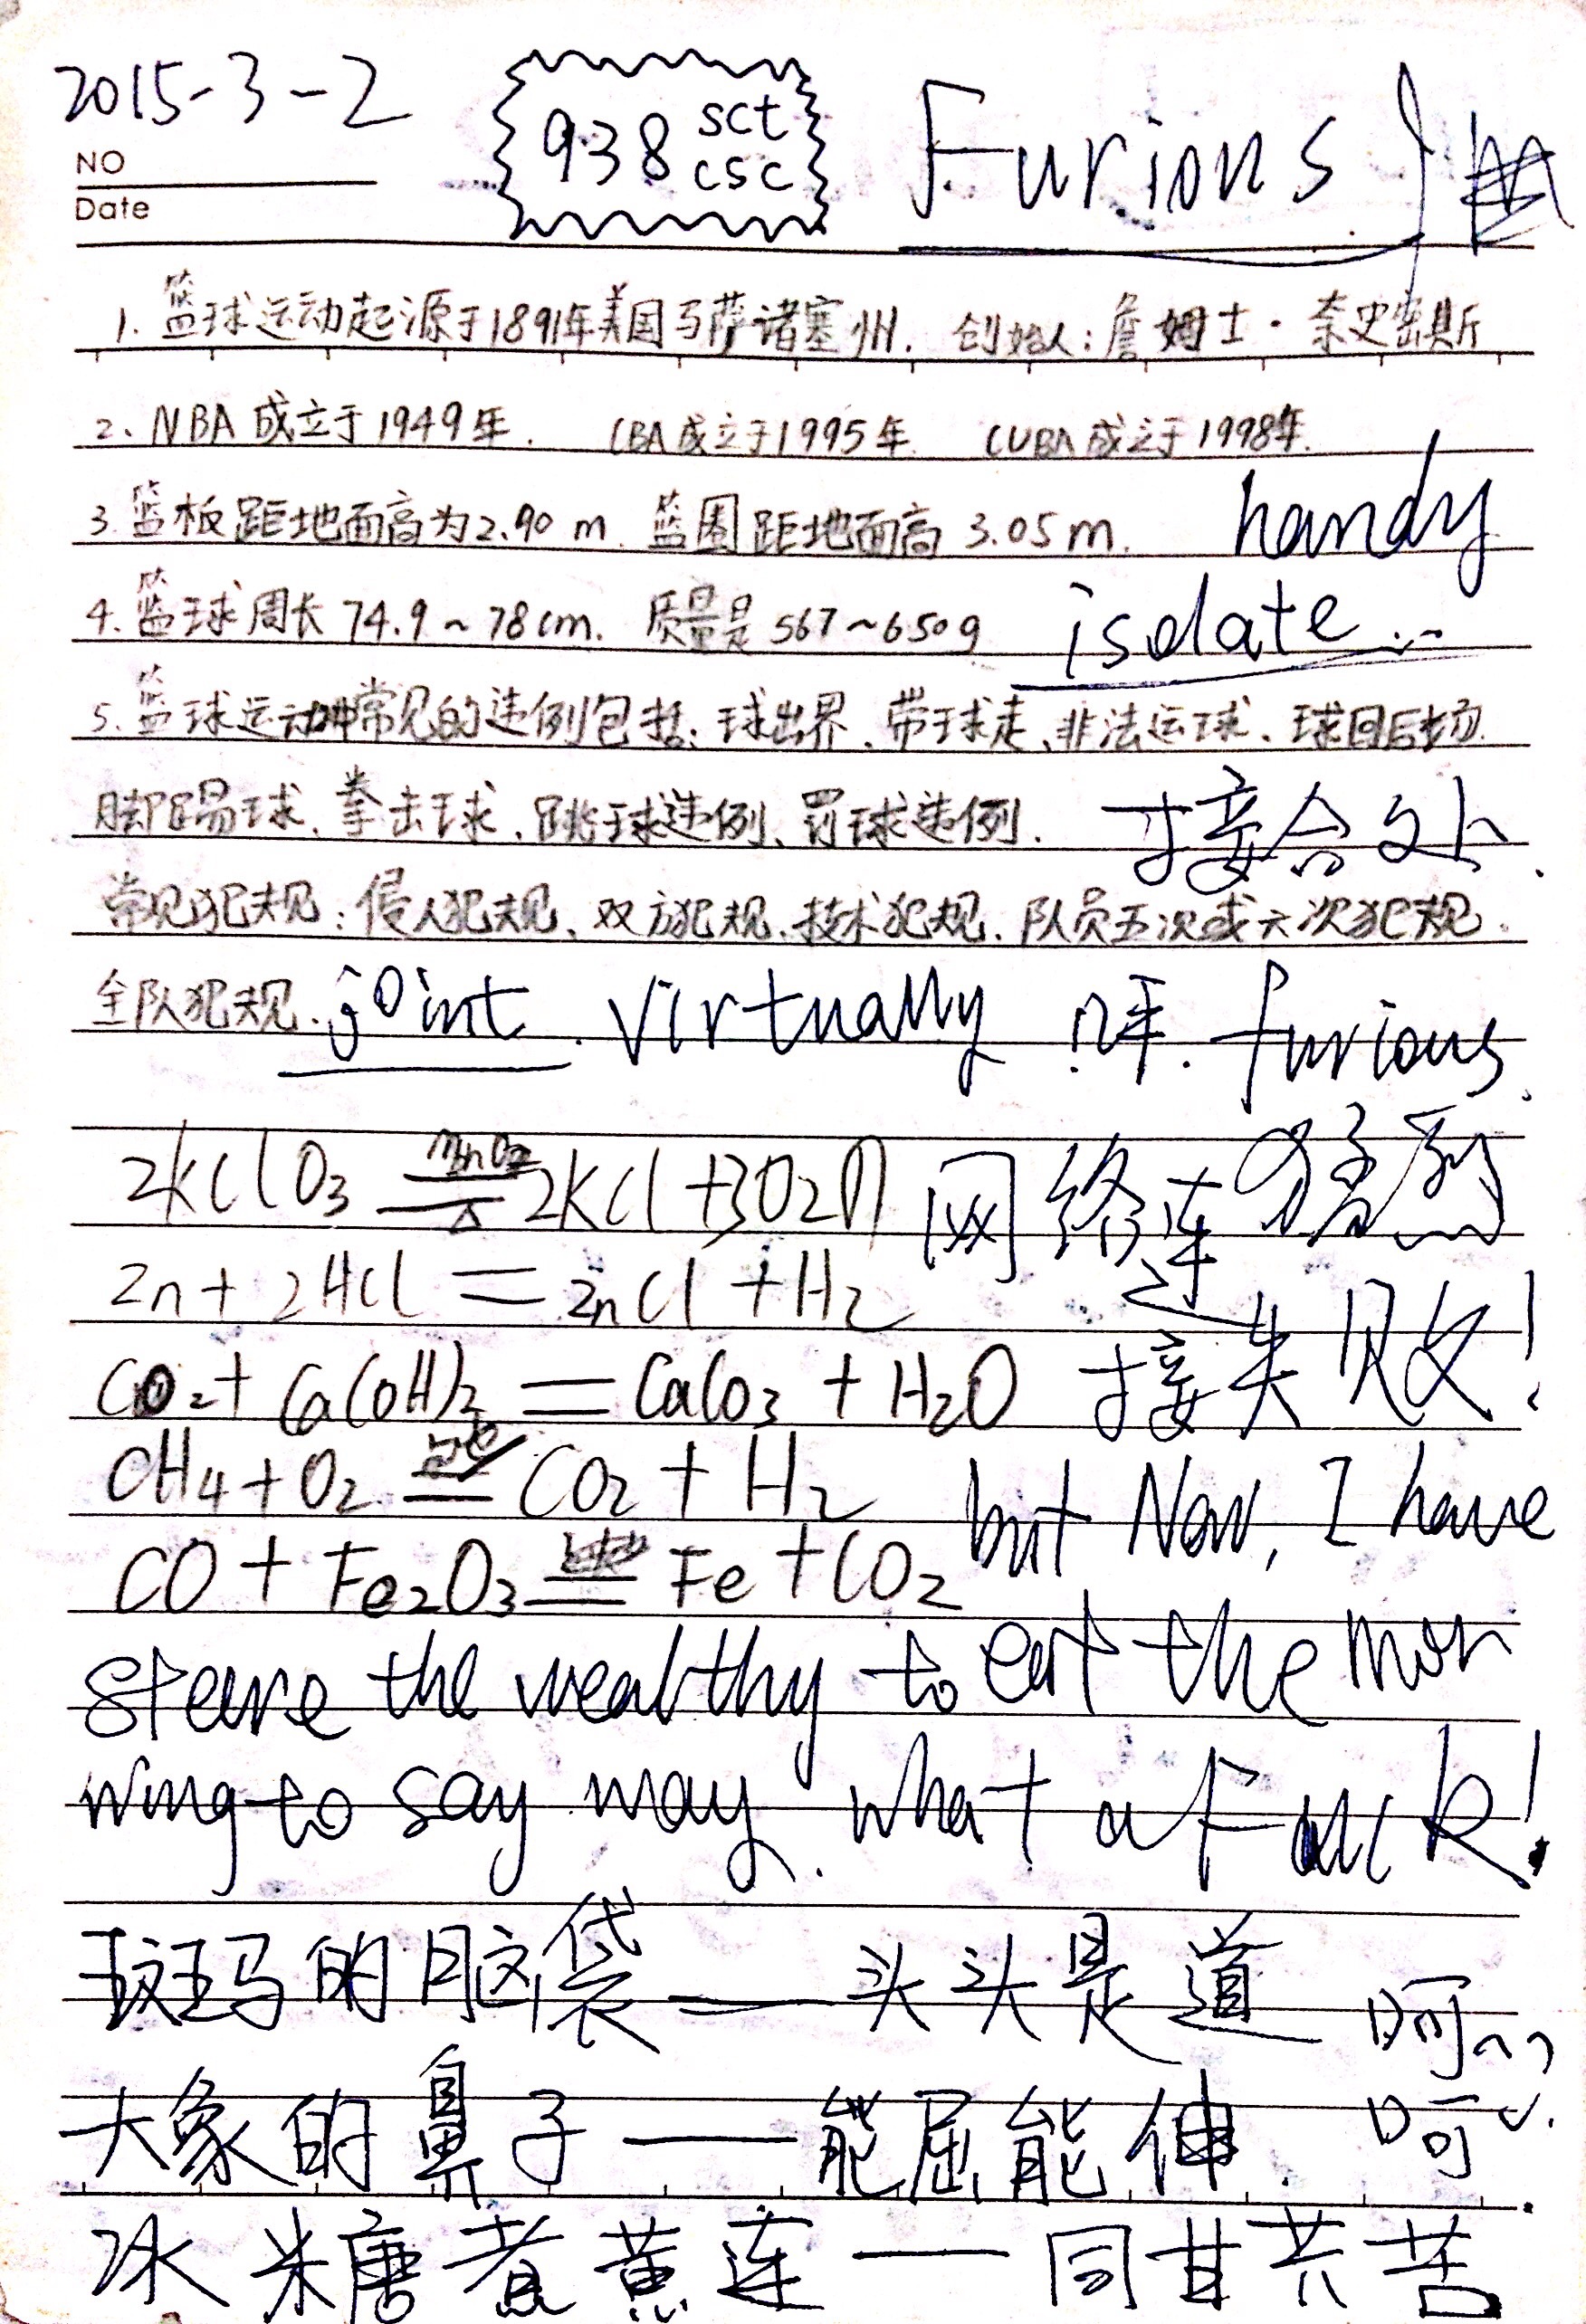 2015-3-2
938 sct csc
Furious
NO
Date
1. 篮球运动起源于1891年美国马萨诸塞州. 创始人:詹姆士·奈史密斯
2、NBA成立于1949年. CBA成立于1995年 CUBA成立于1998年.
3.篮板距地面高为2.90 m. 篮圈距地面高 3.05m. handy
4.篮球周长 74.9~78cm. 质量是 567~650g isolate..
5.篮球运动中常见的违例包括: 球出界、带球走、非法运球、球回后场
脚踢球、拳击球、跳球违例、罚球违例. 接合处.
常见犯规:侵人犯规、双方犯规、技术犯规. 队员五次或六次犯规.
全队犯规. joint. virtually 呼. furious.
2KClO3 MnO2 = △ 2KCl+3O2↑ 网络连 猛烈
Zn+2HCl = ZnCl+H2
CO2+Ca(OH)2 = CaCO3+H2O 接失败!
CH4+O2 = CO2+H2 but Now, I have
CO+Fe2O3 = Fe+CO2
the wealthy to eat the mor
ning to say may. what a Fuck!
斑玛的脑袋——头头是道 呵
大象的鼻子——能屈能伸. 呵.
冰米糖煮黄连——同甘共苦